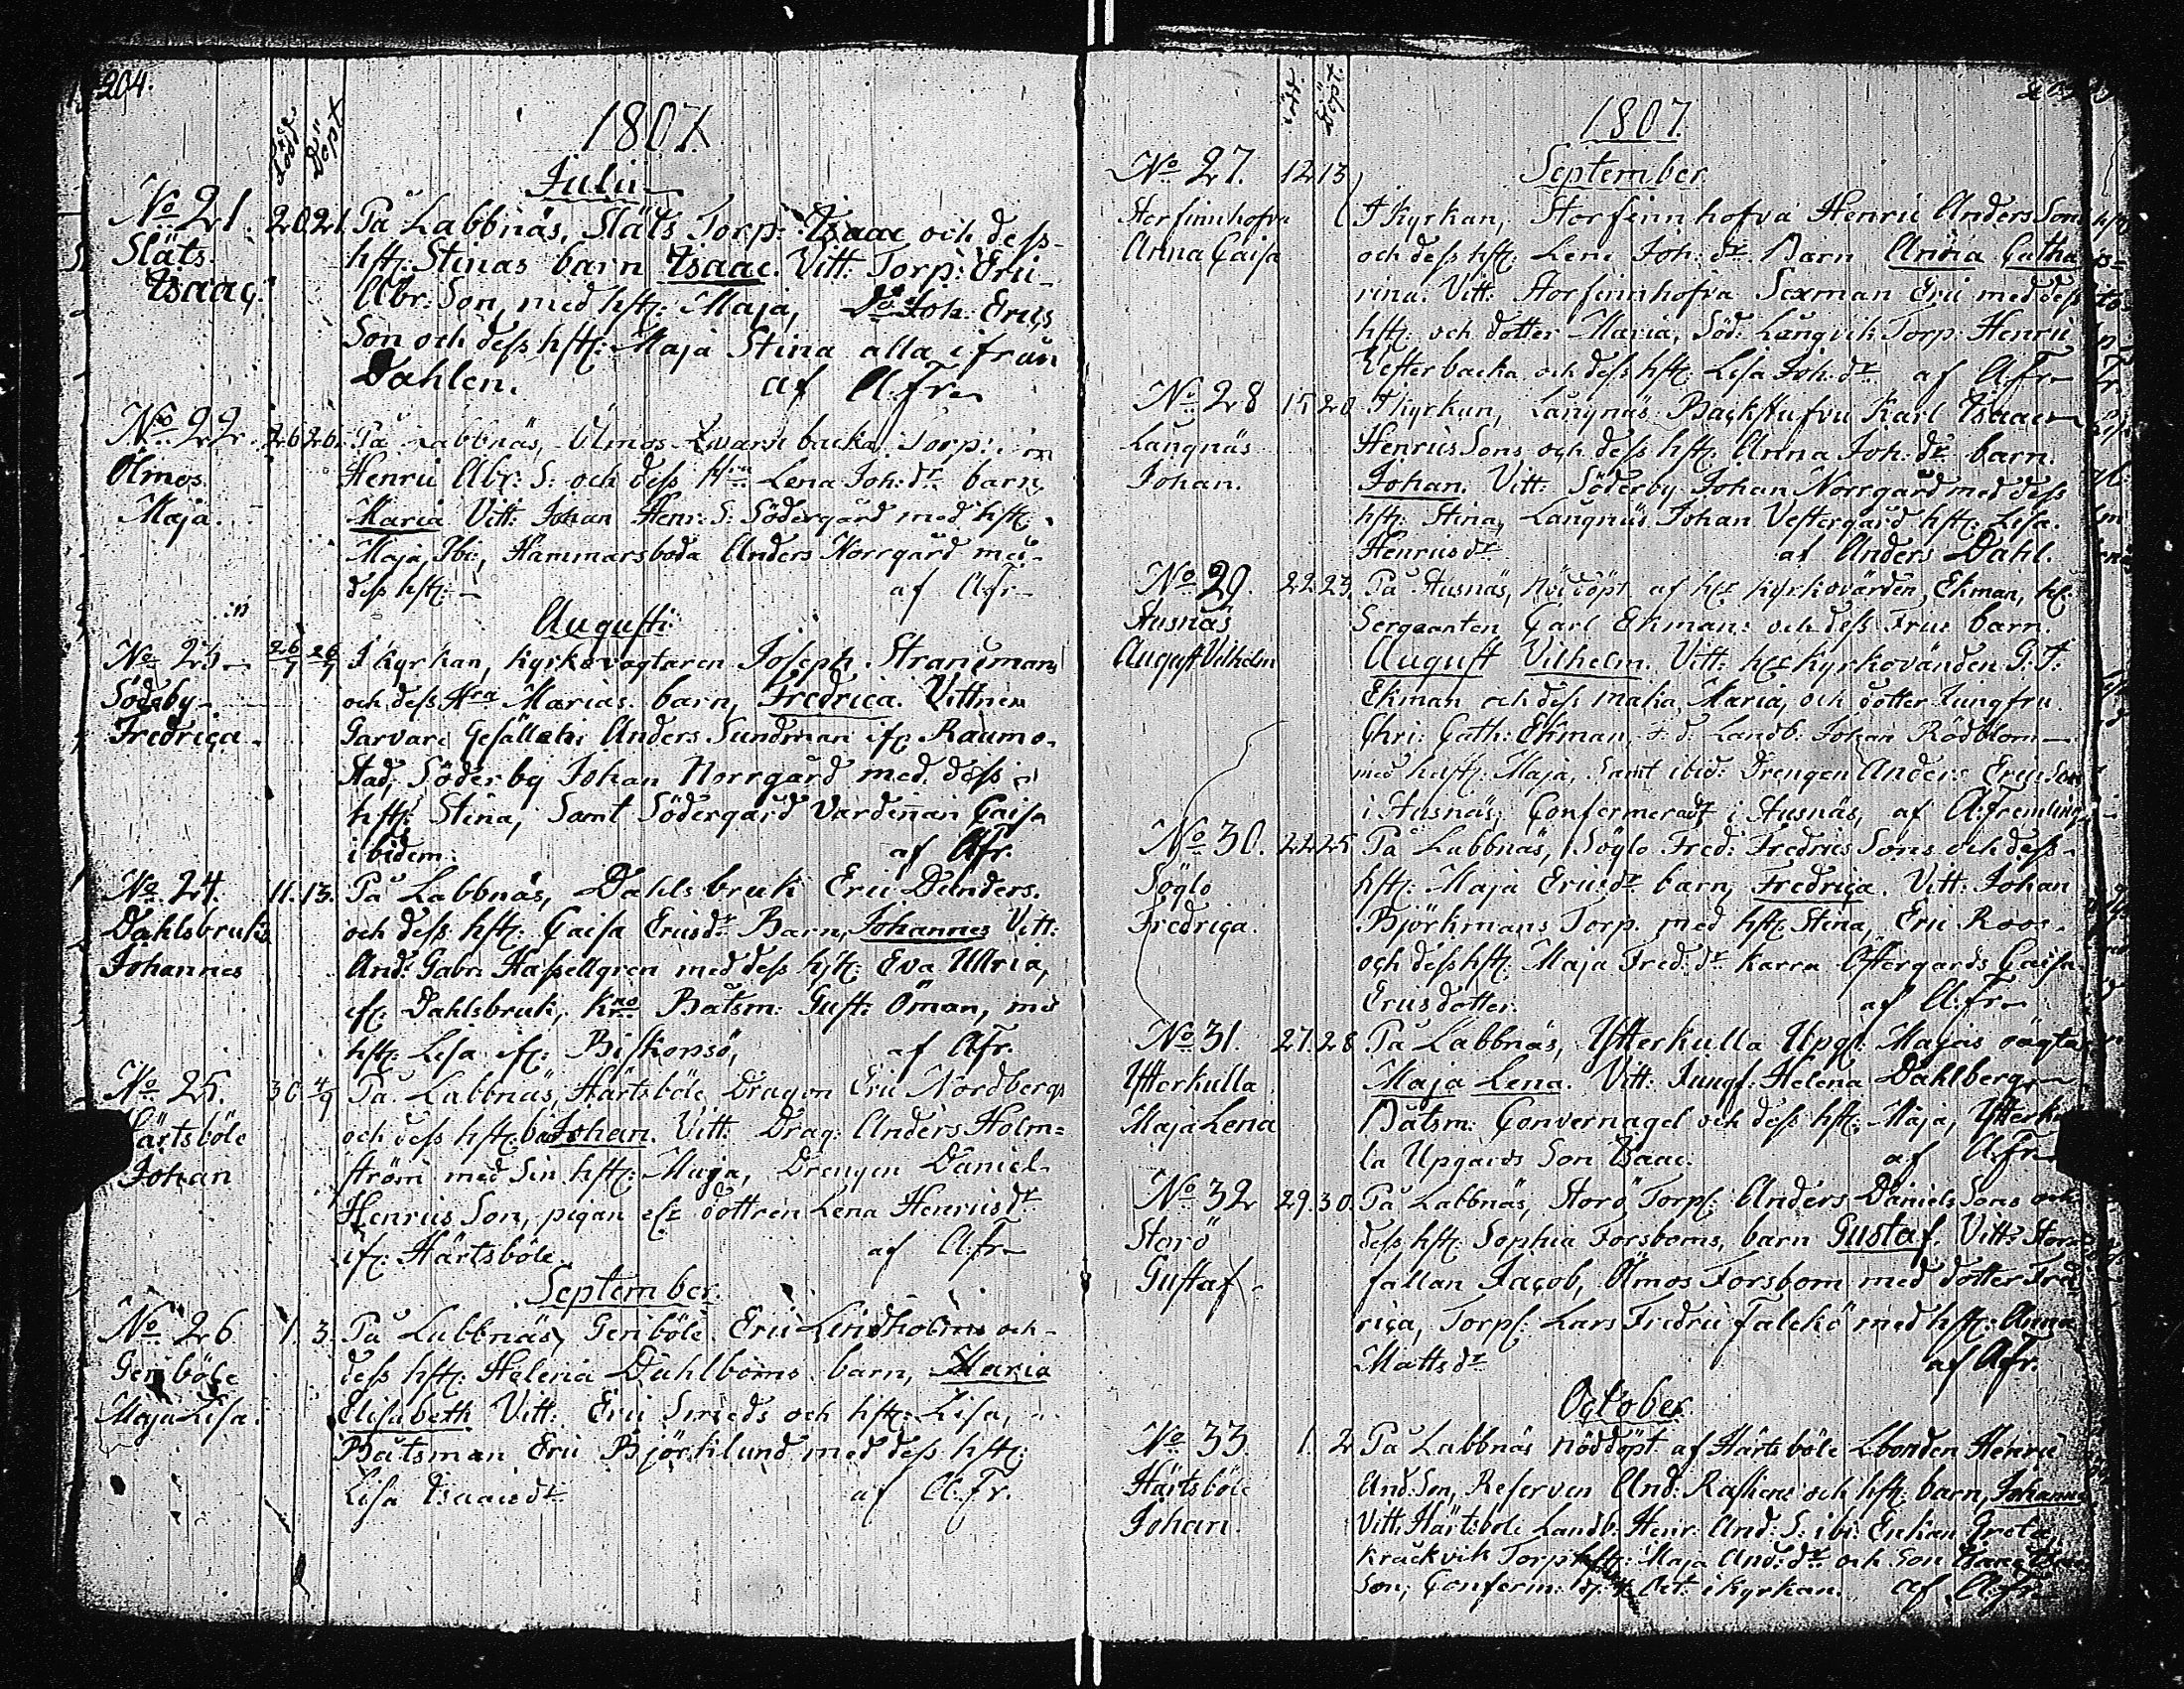 204.
född. Döpt
1807.
Julii
No 21. 20. 21. På Labbnäs, Släts Torp: Isaac och dess
Släts hst: Stinas barn Isaac. Vitt: Torp: Eric
Isaac. Abr: Son, med hst: Maja, Do Joh: Erics
Son och dess hst: Maja Stina alla ifrån
Dahlen. af A.fr.
No 22. 26 26. På Labbnäs, Ölmos backa Torp:
Ölmos Henric Abr: S: och dess Lena Joh: dr barn
Maja. Maria Vitt: Johan Henr: S: Södergård med hst:
Maja, Ibi:, Hammarsboda Anders Norrgård med
dess hst: af A.fr
Augusti
No 23 26/7 26/7 I Kyrkan, Kyrkovagtaren Joseph Strandmans
Söderby och dess Hra Marias barn, Fredrica. Vittnen
Fredrica. Garvare Gesällen Anders Sundman ifr: Raumo
Stad, Söderby Johan Norrgård med dess
hst: Stina, Samt Södergård Värdinnan Caisa
ibidem. af Afr.
No 24. 11. 13. På Labbnäs, Dahlsbruk Eric Dunders
Dahlsbruk och dess hst: Caisa Ericsdr Barn, Johannes Vitt:
Johannes And: Gabr: Hassellgren med dess hst: Eva Maria,
ifr: Dahlsbruk, Krno Båtsm: Gust: Öman, med
hst: Lisa ifr: Biskopsö, af Afr.
No 25. 30 4/9 På Labbnäs, Härtsböle Dragon Eric Nordbergs
Härtsböle och dess hst: barn Johan. Vitt: Drag: Anders Holm=
Johan ström med Sin hst: Maja, Drengen Daniel
Henrics Son, pigan dottren Lena Henricsdr
ifr: Härtsböle. af A.fr
September
No 26 1. 3. På Labbnäs, Genböle Eric Lindholms och
Genböle dess hst: Helena Dahlboms barn, Maria
Maja Lisa. Elisabeth Vitt: Eric Smeds och hst: Lisa,
Båtsman Eric Björklund med dess hst:
Lisa Isaacsdr af A.fr.
född. Döpt
1807.
September
No 27. 12 13
Storfinnhofva I Kyrkan, Storfinnhofva Henric Anders Sons
Anna Caisa och dess hst: Lena Joh: dr Barn Anna Catha
rina. Vitt: Storfinnhofva Sexman Eric med dess
hst: och dotter Maria, Söd: Långvik Torp: Henric
Vesterbacka och dess hst: Lisa Joh: dr af A.Fr
No 28 15 20 I Kyrkan, Långnäs Backstufvu Karl Isaac
Långnäs Henrics Sons och dess hst: Anna Joh: dr barn
Johan. Johan. Vitt: Söderby Johan Norrgård med dess
hst: Stina, Långnäs Johan Vestergård hst: Lisa
Henricsdr af Anders Dahl.
No 29. 22 23. På Stusnäs, Nöddöpt af hr Kyrkovärden Ekman, hr:
Stusnäs Sergeanten Carl Ekmans och dess Frus barn
August Vilhelm August Vilhelm. Vitt: hr Kyrkovärden G: J:
Ekman och dess maka Maria, och dotter Jungfru
Chri: Cath: Ekman, Landb: Johan Rödblom
med hst: Maja, Samt ibid: Drengen Anders Erics Son
i Stusnäs, Confermeradt i Stusnäs, af A: Fremling
No 30. 22 25 På Labbnäs, Söglo Fred: Fredrics Sons och dess
Söglo hst: Maja Ericsdr barn, Fredrica. Vitt: Johan
Fredrica. Björkmans Torp. med hst: Stina, Eric Roos
och dess hst: Maja Fred: dr Karra Östergårds Caisa
Ericsdotter. af A.fr
No 31. 27. 28 På Labbnäs, Ytterkulla Upg: Majas oägta
Ytterkulla Maja Lena. Vitt: Jungf: Helena Dahlberg,
Maja Lena Båtsm: Convernagel och dess hst: Maja, Ytterkul
la Upgårds Son Isaac. af A.Fr
No 32 29. 30. På Labbnäs, Storö Torp: Anders Daniels Sons och
Storö dess hst: Sophia Forsboms, barn Gustaf. Vitt: Storö
Gustaf fallan Jacob, Ölmos Forsbom med dotter Fred
rica, Torp: Lars Fredric Falckö med hst: Anna
Matts dr af Afr.
October
No 33. 1. 2 På Labbnäs nöddöpt af Härtsböle Lbonden Henric
Härtsböle And: Son, Reserven And: Raskens och hst: barn, Johannes
Johan. Vitt: Härtsböle Landb: Henr: And: S: ibi: Enkan Greta
Krackvik Torp hst: Maja And: dr och Son Isaac
Son, Conferm: Oct: i Kyrkan. af A.fr